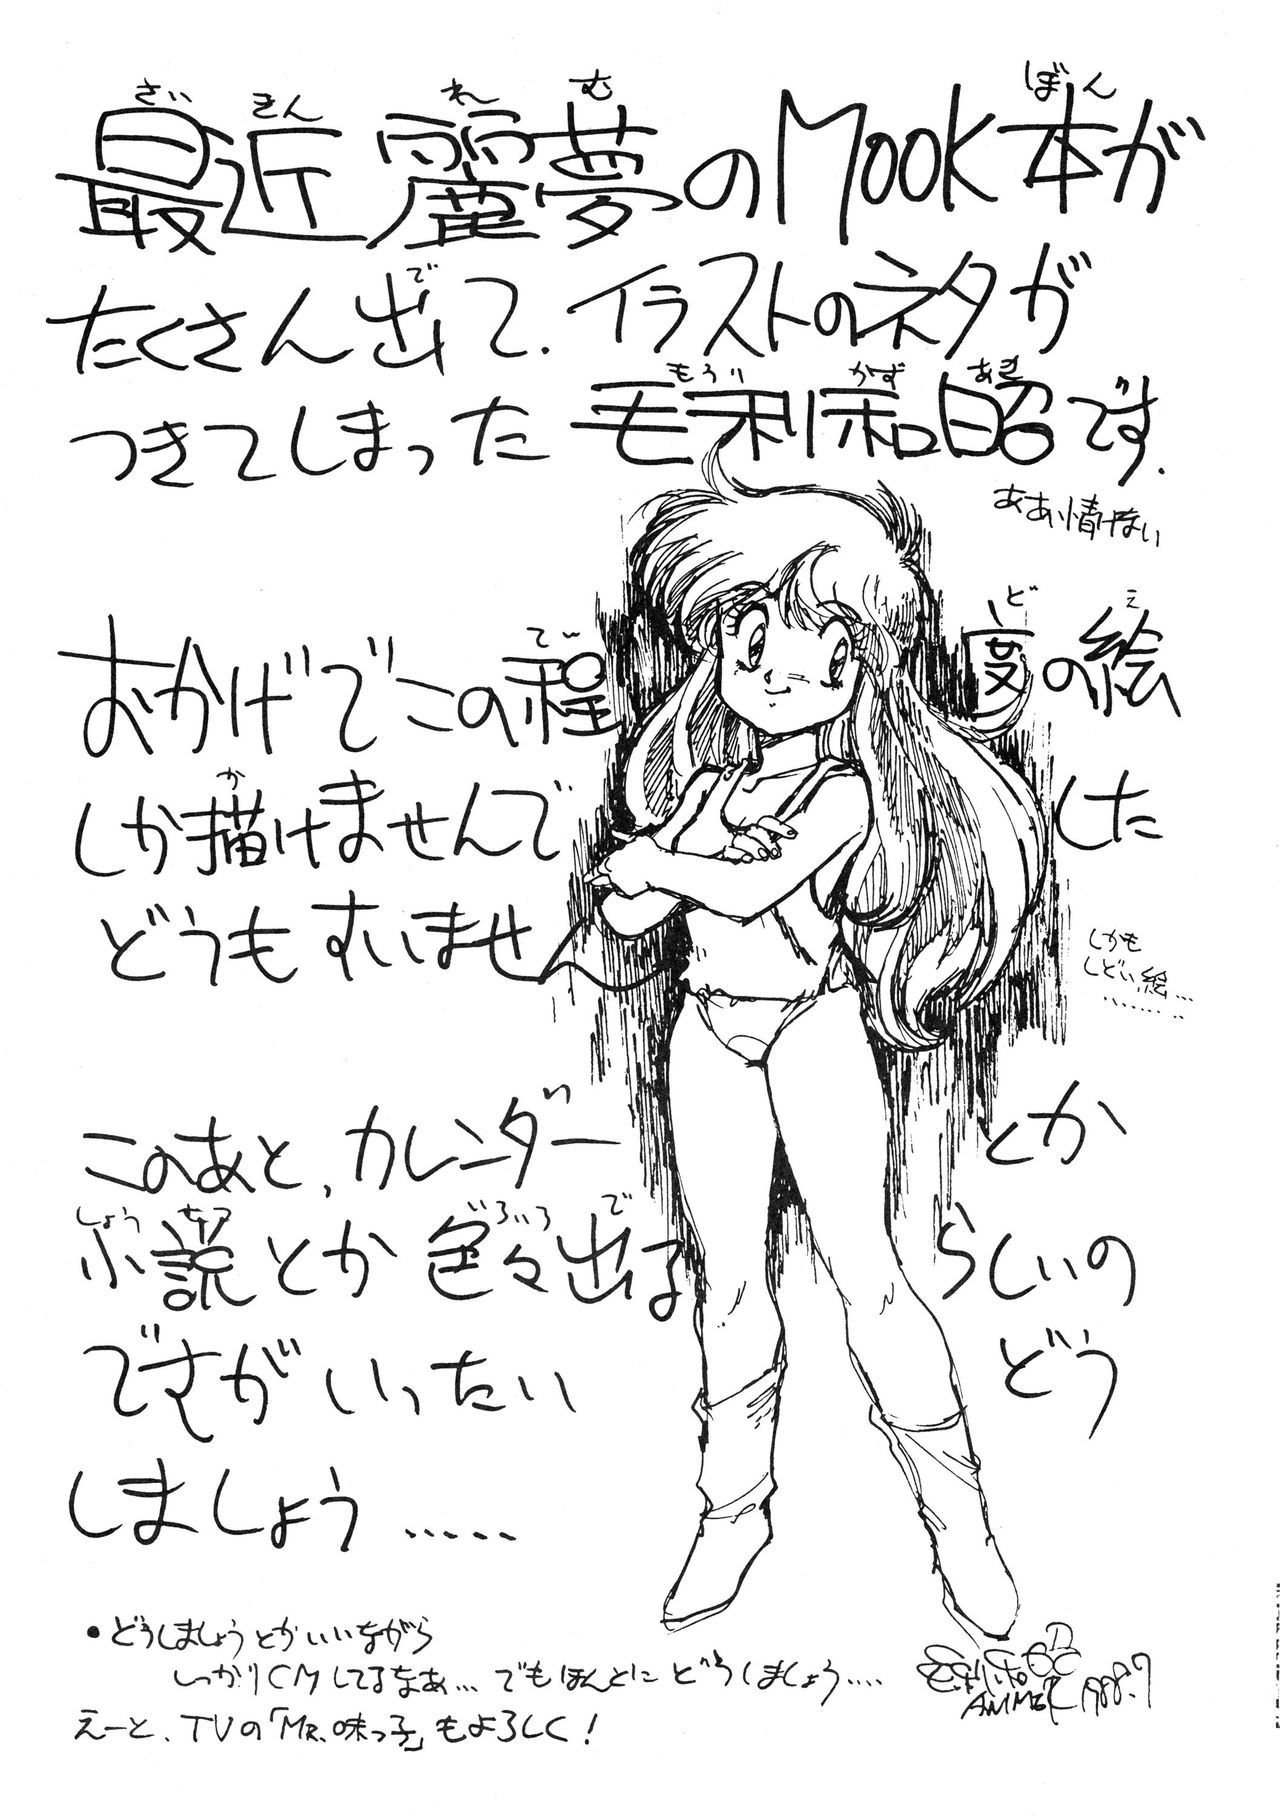 最近麗夢のMOOK本が
たくさん出て、イラストのネタが
つきてしまった毛利和昭です.
ああ情けない
おかげでこの程度の絵
しか描けませんでした
どうもすいませ
しかも
しどい絵…
………
このあと、カレンダーとか
小説とか色々出るらしいの
ですがいったいどう
しましょう……
•どうしましょうとかいいながら
しっかりCMしてるなあ…でもほんとにどうしましょう….
えーと、TVの「MR.味っ子」もよろしく!
1988.7